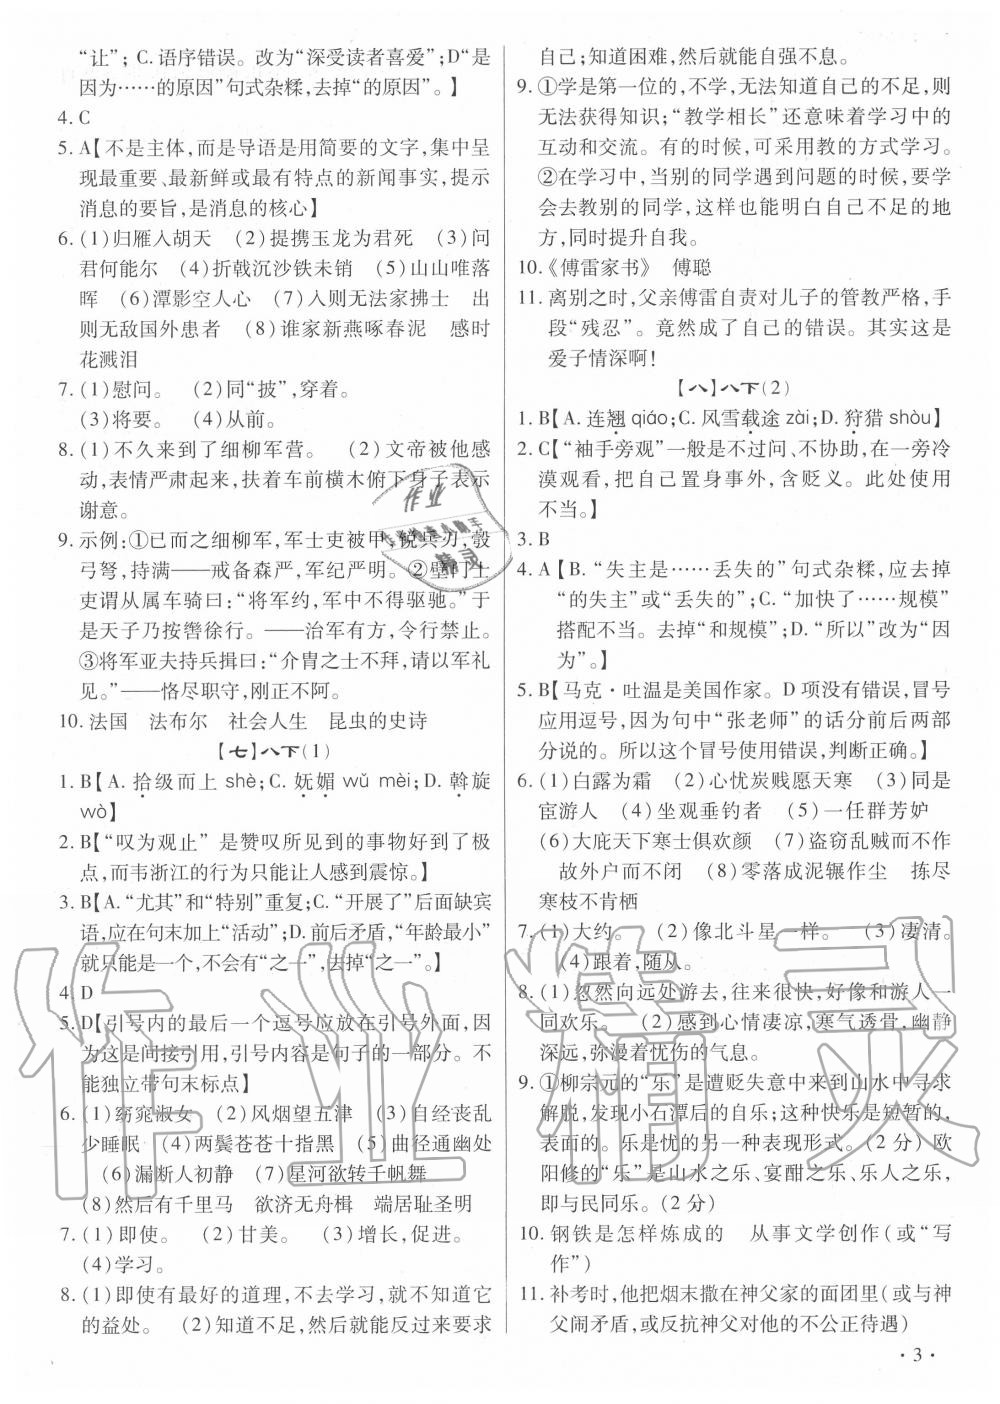 “让”; C. 语序错误。改为“深受读者喜爱”;D“是
因为……的原因”句式杂糅,去掉“的原因”。】
4. C
5. A【不是主体,而是导语是用简要的文字,集中呈
现最重要、最新鲜或最有特点的新闻事实,提示
消息的要旨,是消息的核心】
6. (1)归雁入胡天　(2)提携玉龙为君死　(3)问
君何能尔　(4)折戟沉沙铁未销　(5)山山唯落
晖　(6)潭影空人心　(7)入则无法家拂士　出
则无敌国外患者　(8)谁家新燕啄春泥　感时
花溅泪
7. (1)慰问。　(2)同“披”,穿着。
(3)将要。　(4)从前。
8. (1)不久来到了细柳军营。　(2)文帝被他感
动,表情严肃起来,扶着车前横木俯下身子表示
谢意。
9. 示例:①已而之细柳军,军士吏被甲,锐兵刃,彀
弓弩,持满——戒备森严,军纪严明。②壁门士
吏谓从属车骑曰:“将军约,军中不得驱驰。”于
是天子乃按辔徐行。——治军有方,令行禁止。
③将军亚夫持兵揖曰:“介胄之士不拜,请以军礼
见。”——恪尽职守,刚正不阿。
10. 法国　法布尔　社会人生　昆虫的史诗
【七】八下(1)
1. B【A. 拾级而上 shè;C. 妩媚 wǔ mèi;D. 斡旋
wò】
2. B【“叹为观止”是赞叹所见到的事物好到了极
点,而韦浙江的行为只能让人感到震惊。】
3. B【A. “尤其”和“特别”重复;C. “开展了”后面缺宾
语,应在句末加上“活动”;D. 前后矛盾,“年龄最小”
就只能是一个,不会有“之一”,去掉“之一”。】
4. D
5. D【引号内的最后一个逗号应放在引号外面,因
为这是间接引用,引号内容是句子的一部分。不
能独立带句末标点】
6. (1)窈窕淑女　(2)风烟望五津　(3)自经丧乱
少睡眠　(4)两鬓苍苍十指黑　(5)曲径通幽处
(6)漏断人初静　(7)星河欲转千帆舞
(8)然后有千里马　欲济无舟楫　端居耻圣明
7. (1)即使。　(2)甘美。　(3)增长,促进。
(4)学习。
8. (1)即使有最好的道理,不去学习,就不知道它
的益处。　(2)知道不足,然后就能反过来要求
自己;知道困难,然后就能自强不息。
9. ①学是第一位的,不学,无法知道自己的不足,则
无法获得知识;“教学相长”还意味着学习中的
互动和交流。有的时候,可采用教的方式学习。
②在学习中,当别的同学遇到问题的时候,要学
会去教别的同学,这样也能明白自己不足的地
方,同时提升自我。
10.《傅雷家书》　傅聪
11. 离别之时,父亲傅雷自责对儿子的管教严格,手
段“残忍”。竟然成了自己的错误。其实这是
爱子情深啊!
【八】八下(2)
1. B【A. 连翘 qiáo;C. 风雪载途 zài;D. 狩猎 shòu】
2. C【“袖手旁观”一般是不过问、不协助,在一旁冷
漠观看,把自己置身事外,含贬义。此处使用
不当。】
3. B
4. A【B. “失主是……丢失的”句式杂糅,应去掉
“的失主”或“丢失的”;C. “加快了……规模”
搭配不当。去掉“和规模”;D. “所以”改为“因
为”。】
5. B【马克·吐温是美国作家。D 项没有错误,冒号
应用逗号,因为句中“张老师”的话分前后两部
分说的。所以这个冒号使用错误,判断正确。】
6. (1)白露为霜　(2)心忧炭贱愿天寒　(3)同是
宦游人　(4)坐观垂钓者　(5)一任群芳妒
(6)大庇天下寒士俱欢颜　(7)盗窃乱贼而不作
故外户而不闭　(8)零落成泥辗作尘　拣尽
寒枝不肯栖
7. (1)大约。　(2)像北斗星一样。　(3)凄清。
(4)跟着,随从。
8. (1)忽然向远处游去,往来很快,好像和游人一
同欢乐。　(2)感到心情凄凉,寒气透骨,幽静
深远,弥漫着忧伤的气息。
9. ①柳宗元的“乐”是遭贬失意中到山水中寻求
解脱,发现小石潭后的自乐;这种快乐是短暂的,
表面的。乐是忧的另一种表现形式。(2 分) 欧
阳修的“乐”是山水之乐、宴酣之乐、乐人之乐,
即与民同乐。(2 分)
10. 钢铁是怎样炼成的　从事文学创作(或“写
作”)
11. 补考时,他把烟末撒在神父家的面团里(或与神
父闹矛盾,或反抗神父对他的不公正待遇)
· 3 ·
作业
精灵
作业精灵